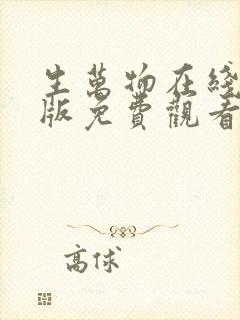 生萬物在綫
版免費觀看
高俅